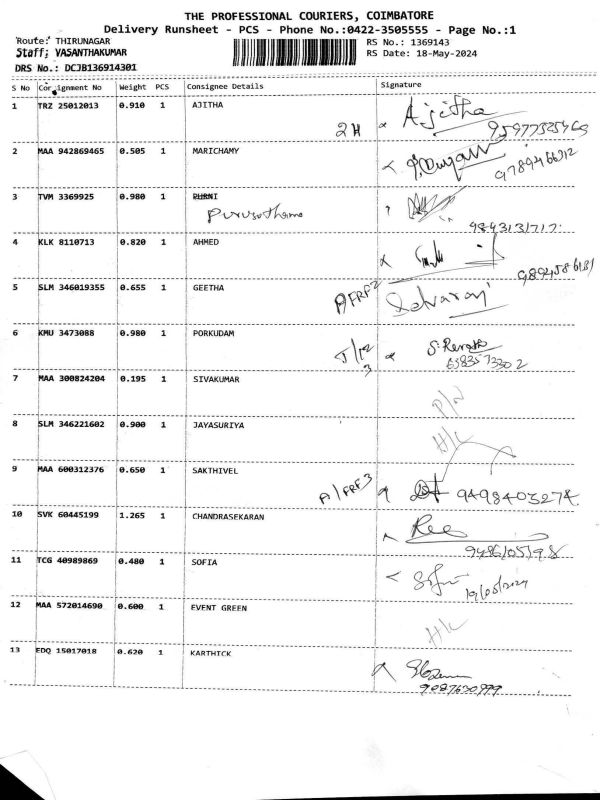 THE PROFESSIONAL COURIERS, COIMBATORE
Delivery Runsheet - PCS - Phone No.:0422-3505555 - Page No.:1
Route: THIRUNAGAR
RS No.: 1369143
Staff; VASANTHAKUMAR
RS Date: 18-May-2024
DRS No.: DCJB136914301
S No Consignment No Weight PCS Consignee Details Signature
1 TRZ 25012013 0.910 1 AJITHA Ajitha
2H
2 MAA 942869465 0.505 1 MARICHAMY
3 TVM 3369925 0.980 1 PURNI
Purusothama
9843131717
4 KLK 8110713 0.820 1 AHMED
5 SLM 346019355 0.655 1 GEETHA Selvaraj
6 KMU 3473088 0.980 1 PORKUDAM S. Revathi
6383573302
7 MAA 300824204 0.195 1 SIVAKUMAR
8 SLM 346221602 0.900 1 JAYASURIYA H/C
9 MAA 600312376 0.650 1 SAKTHIVEL
A/FRF3 9498403274
10 SVK 60445199 1.265 1 CHANDRASEKARAN
11 TCG 40989869 0.480 1 SOFIA
19/05/2024
12 MAA 572014690 0.600 1 EVENT GREEN H/C
13 EDQ 15017018 0.620 1 KARTHICK
9087630999